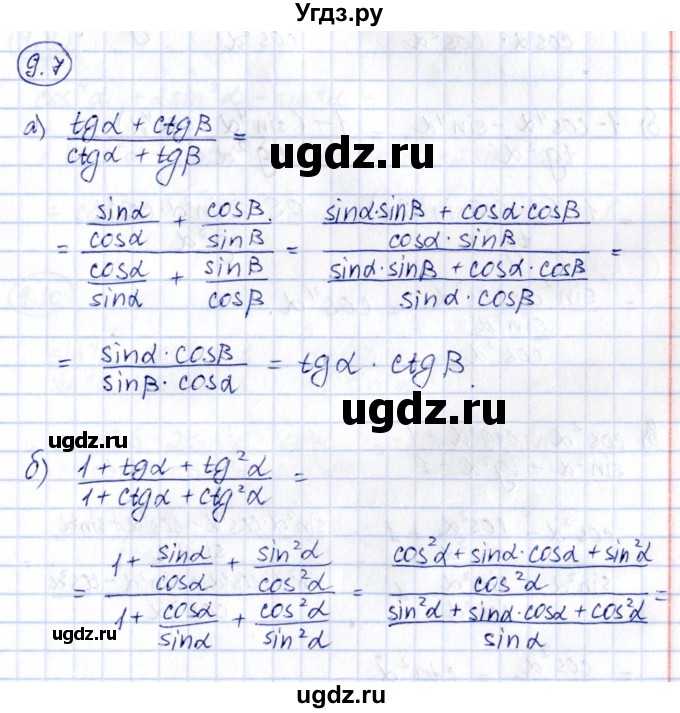 Угдз.ру
9.7
а) (tgα + ctgβ)/(ctgα + tgβ) =
ugdz.ru
= (sinα/cosα + cosβ/sinβ)/(cosα/sinα + sinβ/cosβ) = ((sinα·sinβ + cosα·cosβ)/(cosα·sinβ))/((sinα·sinβ + cosα·cosβ)/(sinα·cosβ)) =
= (sinα·cosβ)/(sinβ·cosα) = tgα · ctgβ.
ugdz.ru
ugdz.ru
б) (1 + tgα + tg²α)/(1 + ctgα + ctg²α) =
= (1 + sinα/cosα + sin²α/cos²α)/(1 + cosα/sinα + cos²α/sin²α) = ((cos²α + sinα·cosα + sin²α)/cos²α)/((sin²α + sinα·cosα + cos²α)/sinα) =
ugdz.ru
ugdz.ru